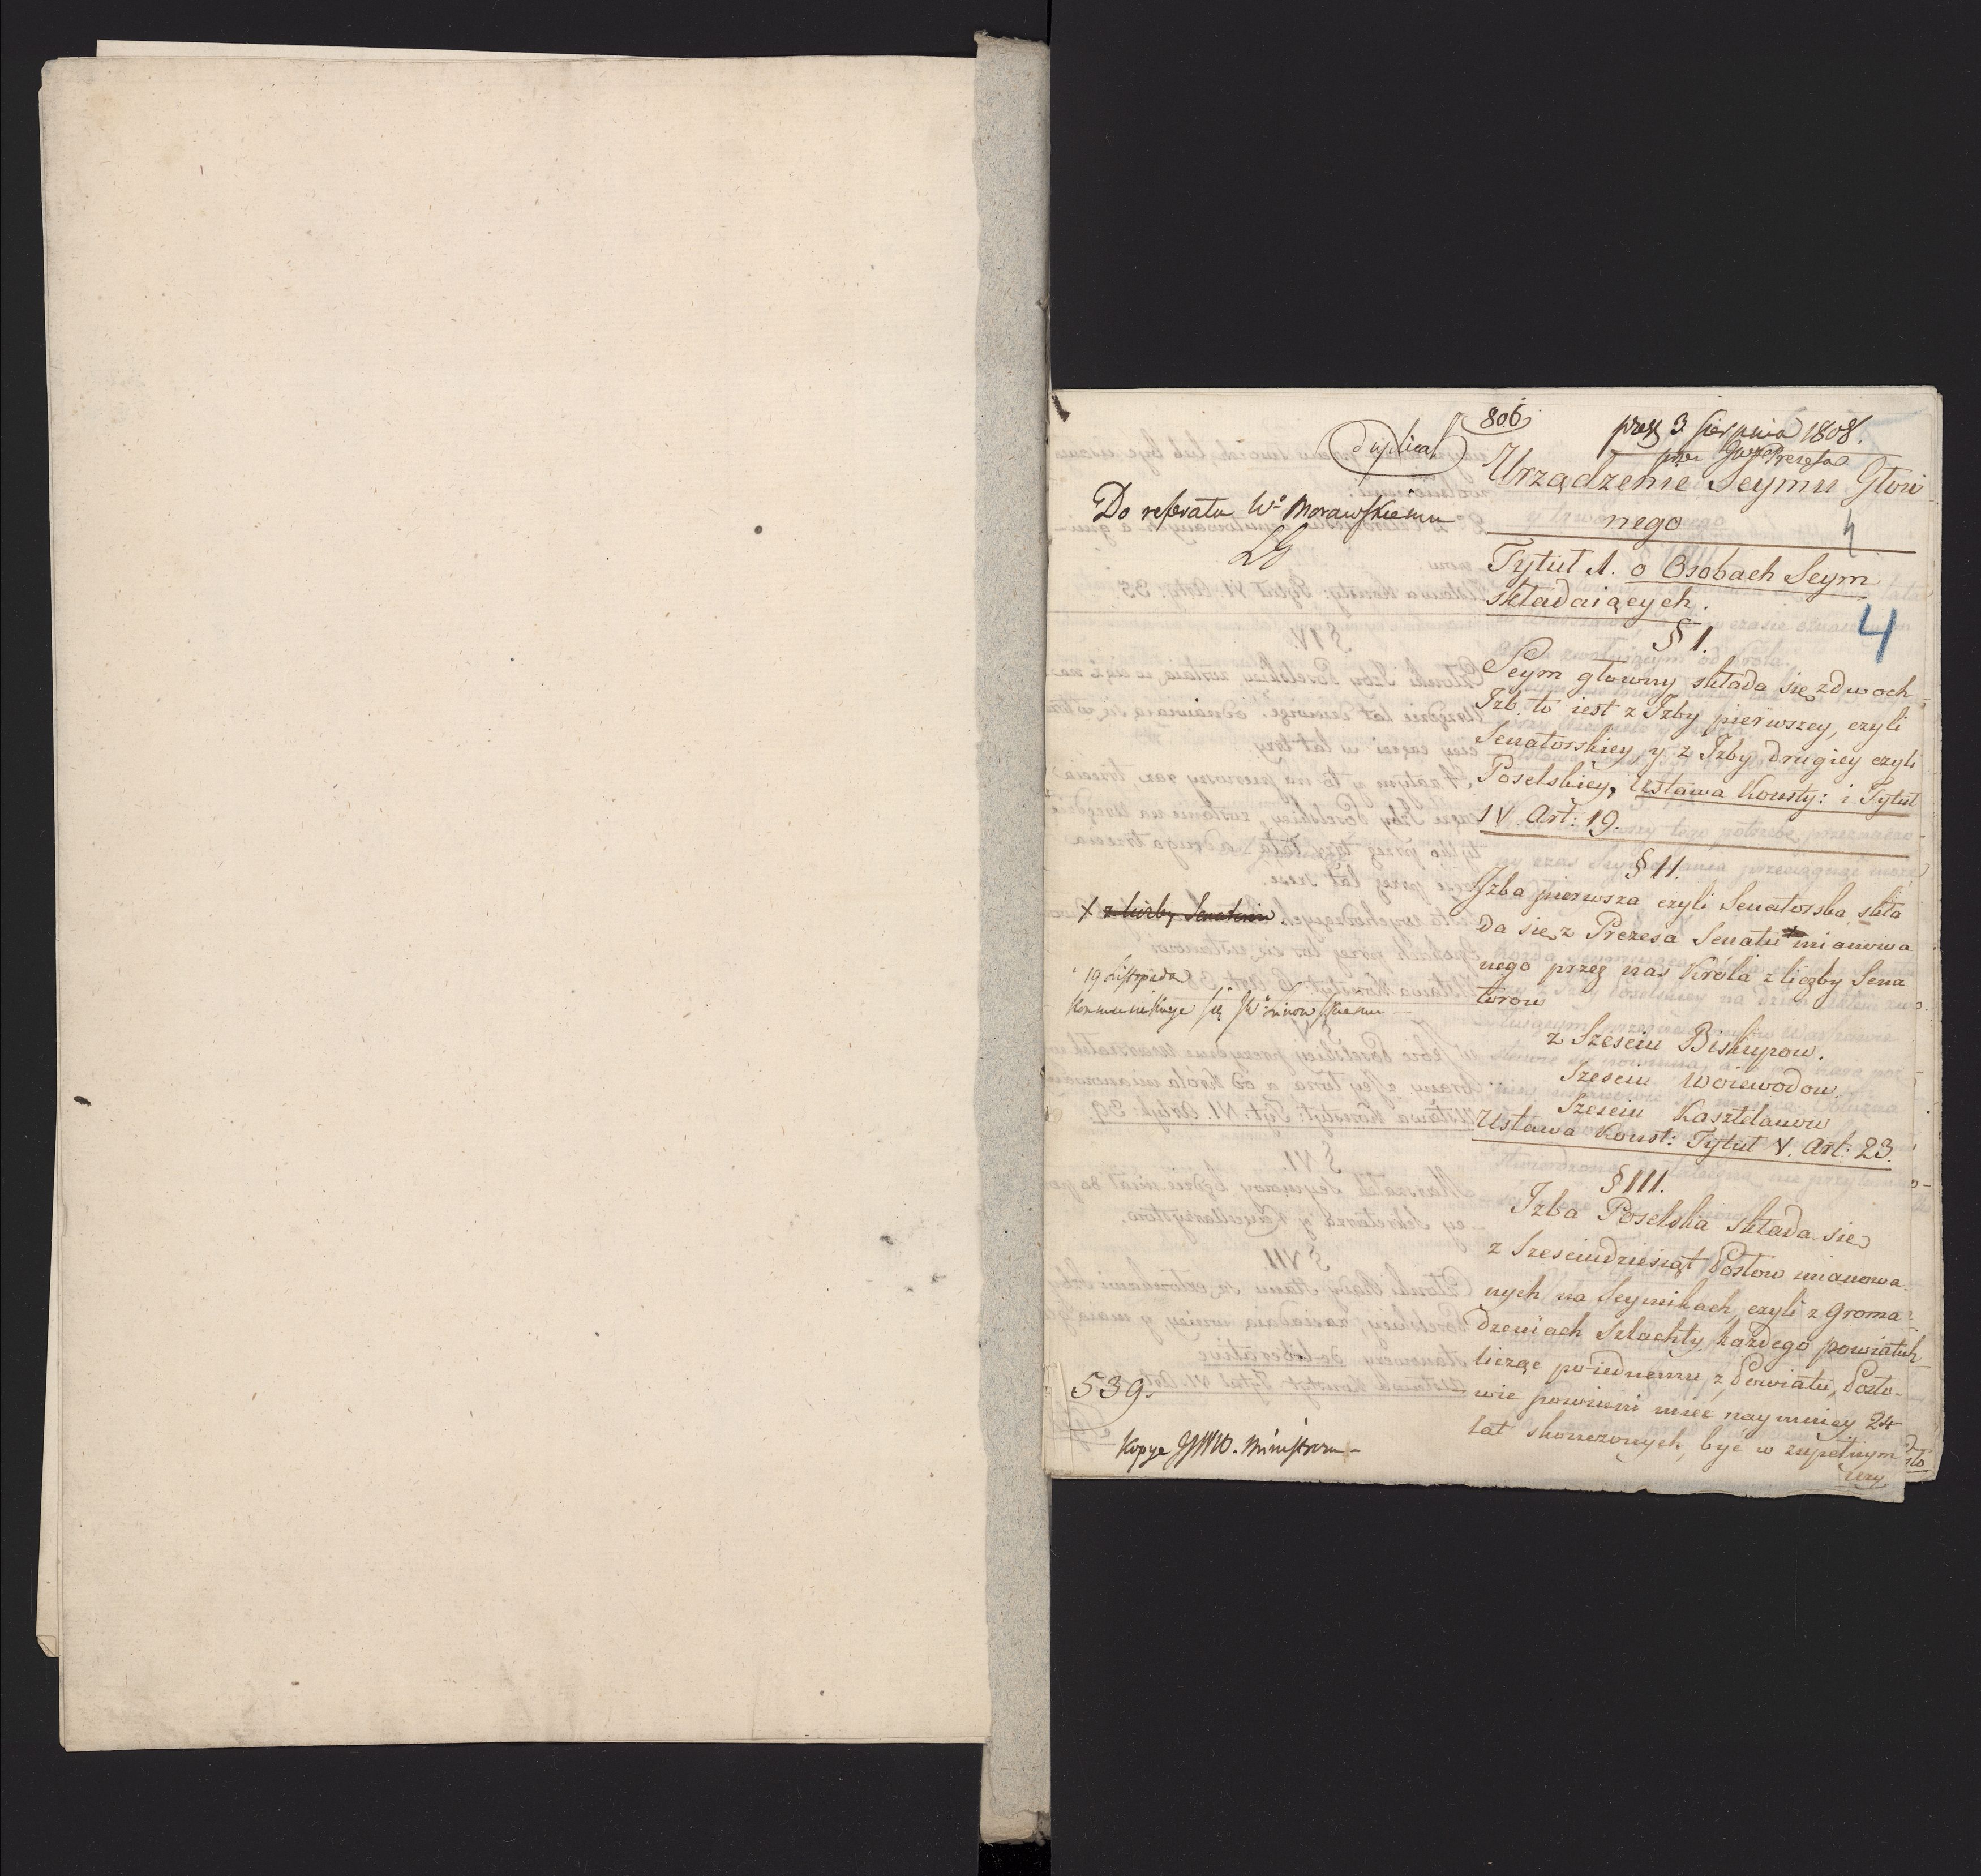 806
duplicat
prez 3 Sierpnia 1808.
przez Prezesa
Do referatu Wo Morawskiemu
Urządzenie Seymu Głow
nego
4
Tytuł 1. o Osobach Seym
składaiących.
4
§ I.
Seym głowny składa się z dwoch
Izb. to iest z Izby pierwszey, czyli
Senatorskiey y z Izby drugiey czyli
Poselskiey, Ustawa Konsty: i Tytuł
IV Art: 19.
§ II.
Izba pierwsza czyli Senatorska skła
da się z Prezesa Senatu mianowa
nego przez nas Króla z liczby Sena
torow
X z liczby Senatorow.
19 Listopada
kommunikuje się
z Szesciu Biskupow.
Szesciu Woiewodow
Szesciu Kasztelanow
Ustawa Konst: Tytuł V. Art: 23.
§ III.
Izba Poselska składa się
z Szesciudziesiąt Posłow mianowa
nych na Seymikach, czyli zgroma
dzeniach Szlachty każdego powiatu
licząc po iednemu z Powiatu, Posło-
wie powinni miec naymniey 24
lat skonczonych, byc w zupełnym
uzy
539.
Kopya JWW. Ministrom